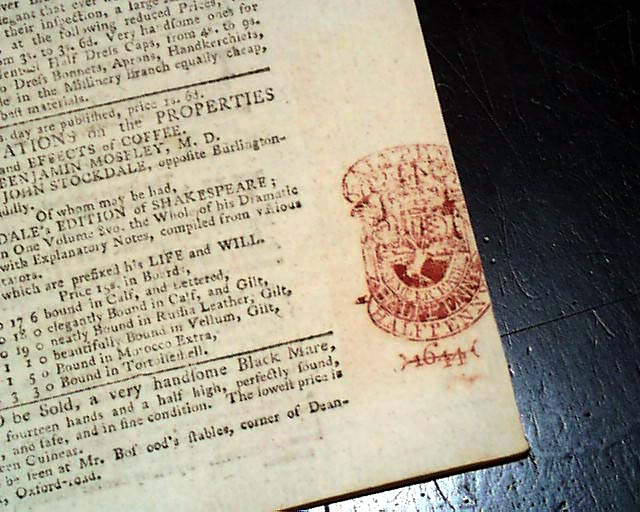 legant that ever
their inspection, a large
at the following reduced Prices,
3s. to 3s. 6d. Very handſome ones for
Half Dreſs Caps, from 4s. to 9s.
Dreſs Bonnets, Aprons, Handkerchiefs,
in the Millinery Branch equally cheap,
beſt materials.
day are publiſhed, price 1s. 6d.
ATIONS on the PROPERTIES
and EFFECTS of COFFEE.
BENJAMIN MOSELEY, M. D.
JOHN STOCKDALE, oppoſite Burlington-
dilly.
Of whom may be had,
DALE's EDITION of SHAKESPEARE;
in One Volume 8vo. the Whole of his Dramatic
with Explanatory Notes, compiled from various
tators.
which are prefixed his LIFE and WILL.
Price 15s. in Boards,
0 17 6 bound in Calf, and Lettered,
0 18 0 elegantly Bound in Calf, and Gilt,
0 19 0 neatly Bound in Ruſſia Leather, Gilt,
1 1 0 beautifully Bound in Vellum, Gilt,
1 5 0 Bound in Morocco Extra,
3 3 0 Bound in Tortoiſeſhell.
O be Sold, a very handſome Black Mare,
fourteen hands and a half high, perfectly found,
and ſafe, and in fine condition. The loweſt price is
een Guineas.
be ſeen at Mr. Boſ ood's ſtables, corner of Dean-
, Oxford-road.
HALFPENNY
1644